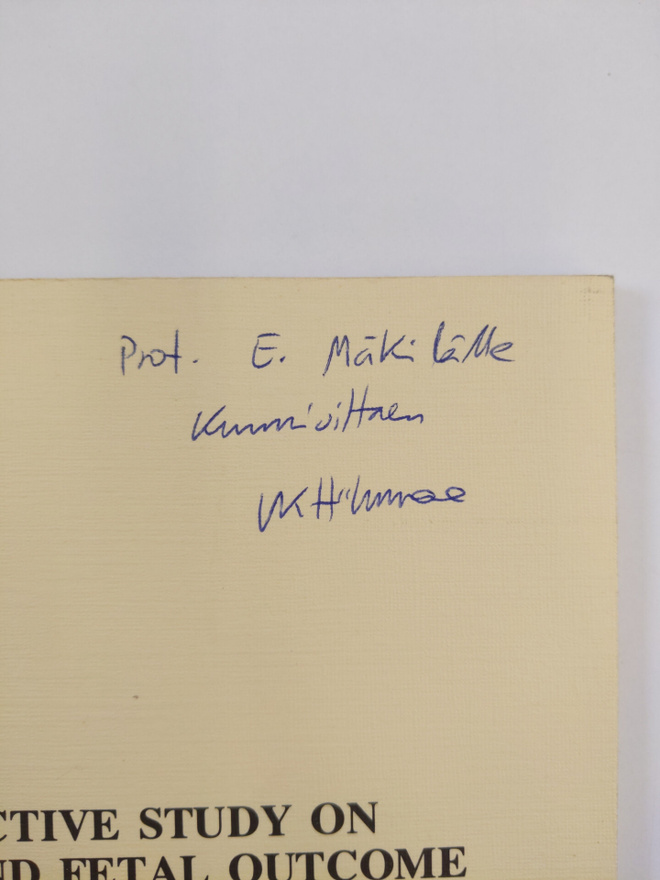 Prof. E. Mäkilälle
Kunnioittaen
CTIVE STUDY ON
ND FETAL OUTCOME